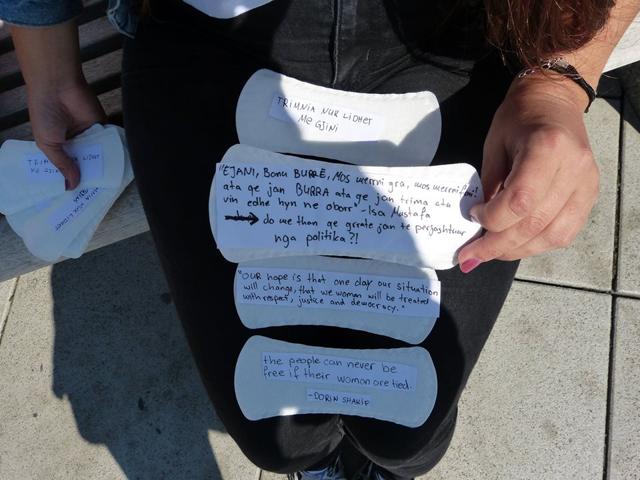 TRIMNIA NUK LIDHET
ME GJINI
"EJANI, Bonu BURRË, Mos merrni gra, mos merrni fmi!
ata qe jan BURRA ata qe jan trima ata
vin edhe hyn ne oborr" - Isa Mustafa
→ do me than qe grrate jan te perjashtuar
nga politika?!
"OUR hope is that one day our situation
will change, that we women will be treated
with respect, justice and democracy."
the people can never be
free if their woman are tied.
-DORIN SHARIF
TRIMNIA NUK LIDHET
ME GJINI
TRIMNIA
NUK LIDHET